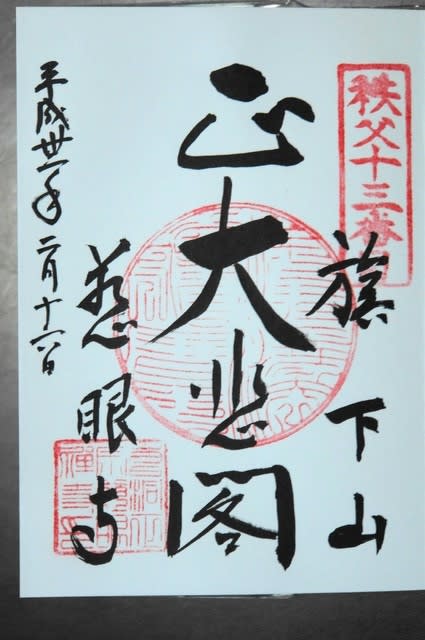 秩父十三番
旗下山
正大悲閣
慈眼寺
平成卅一年二月十六日